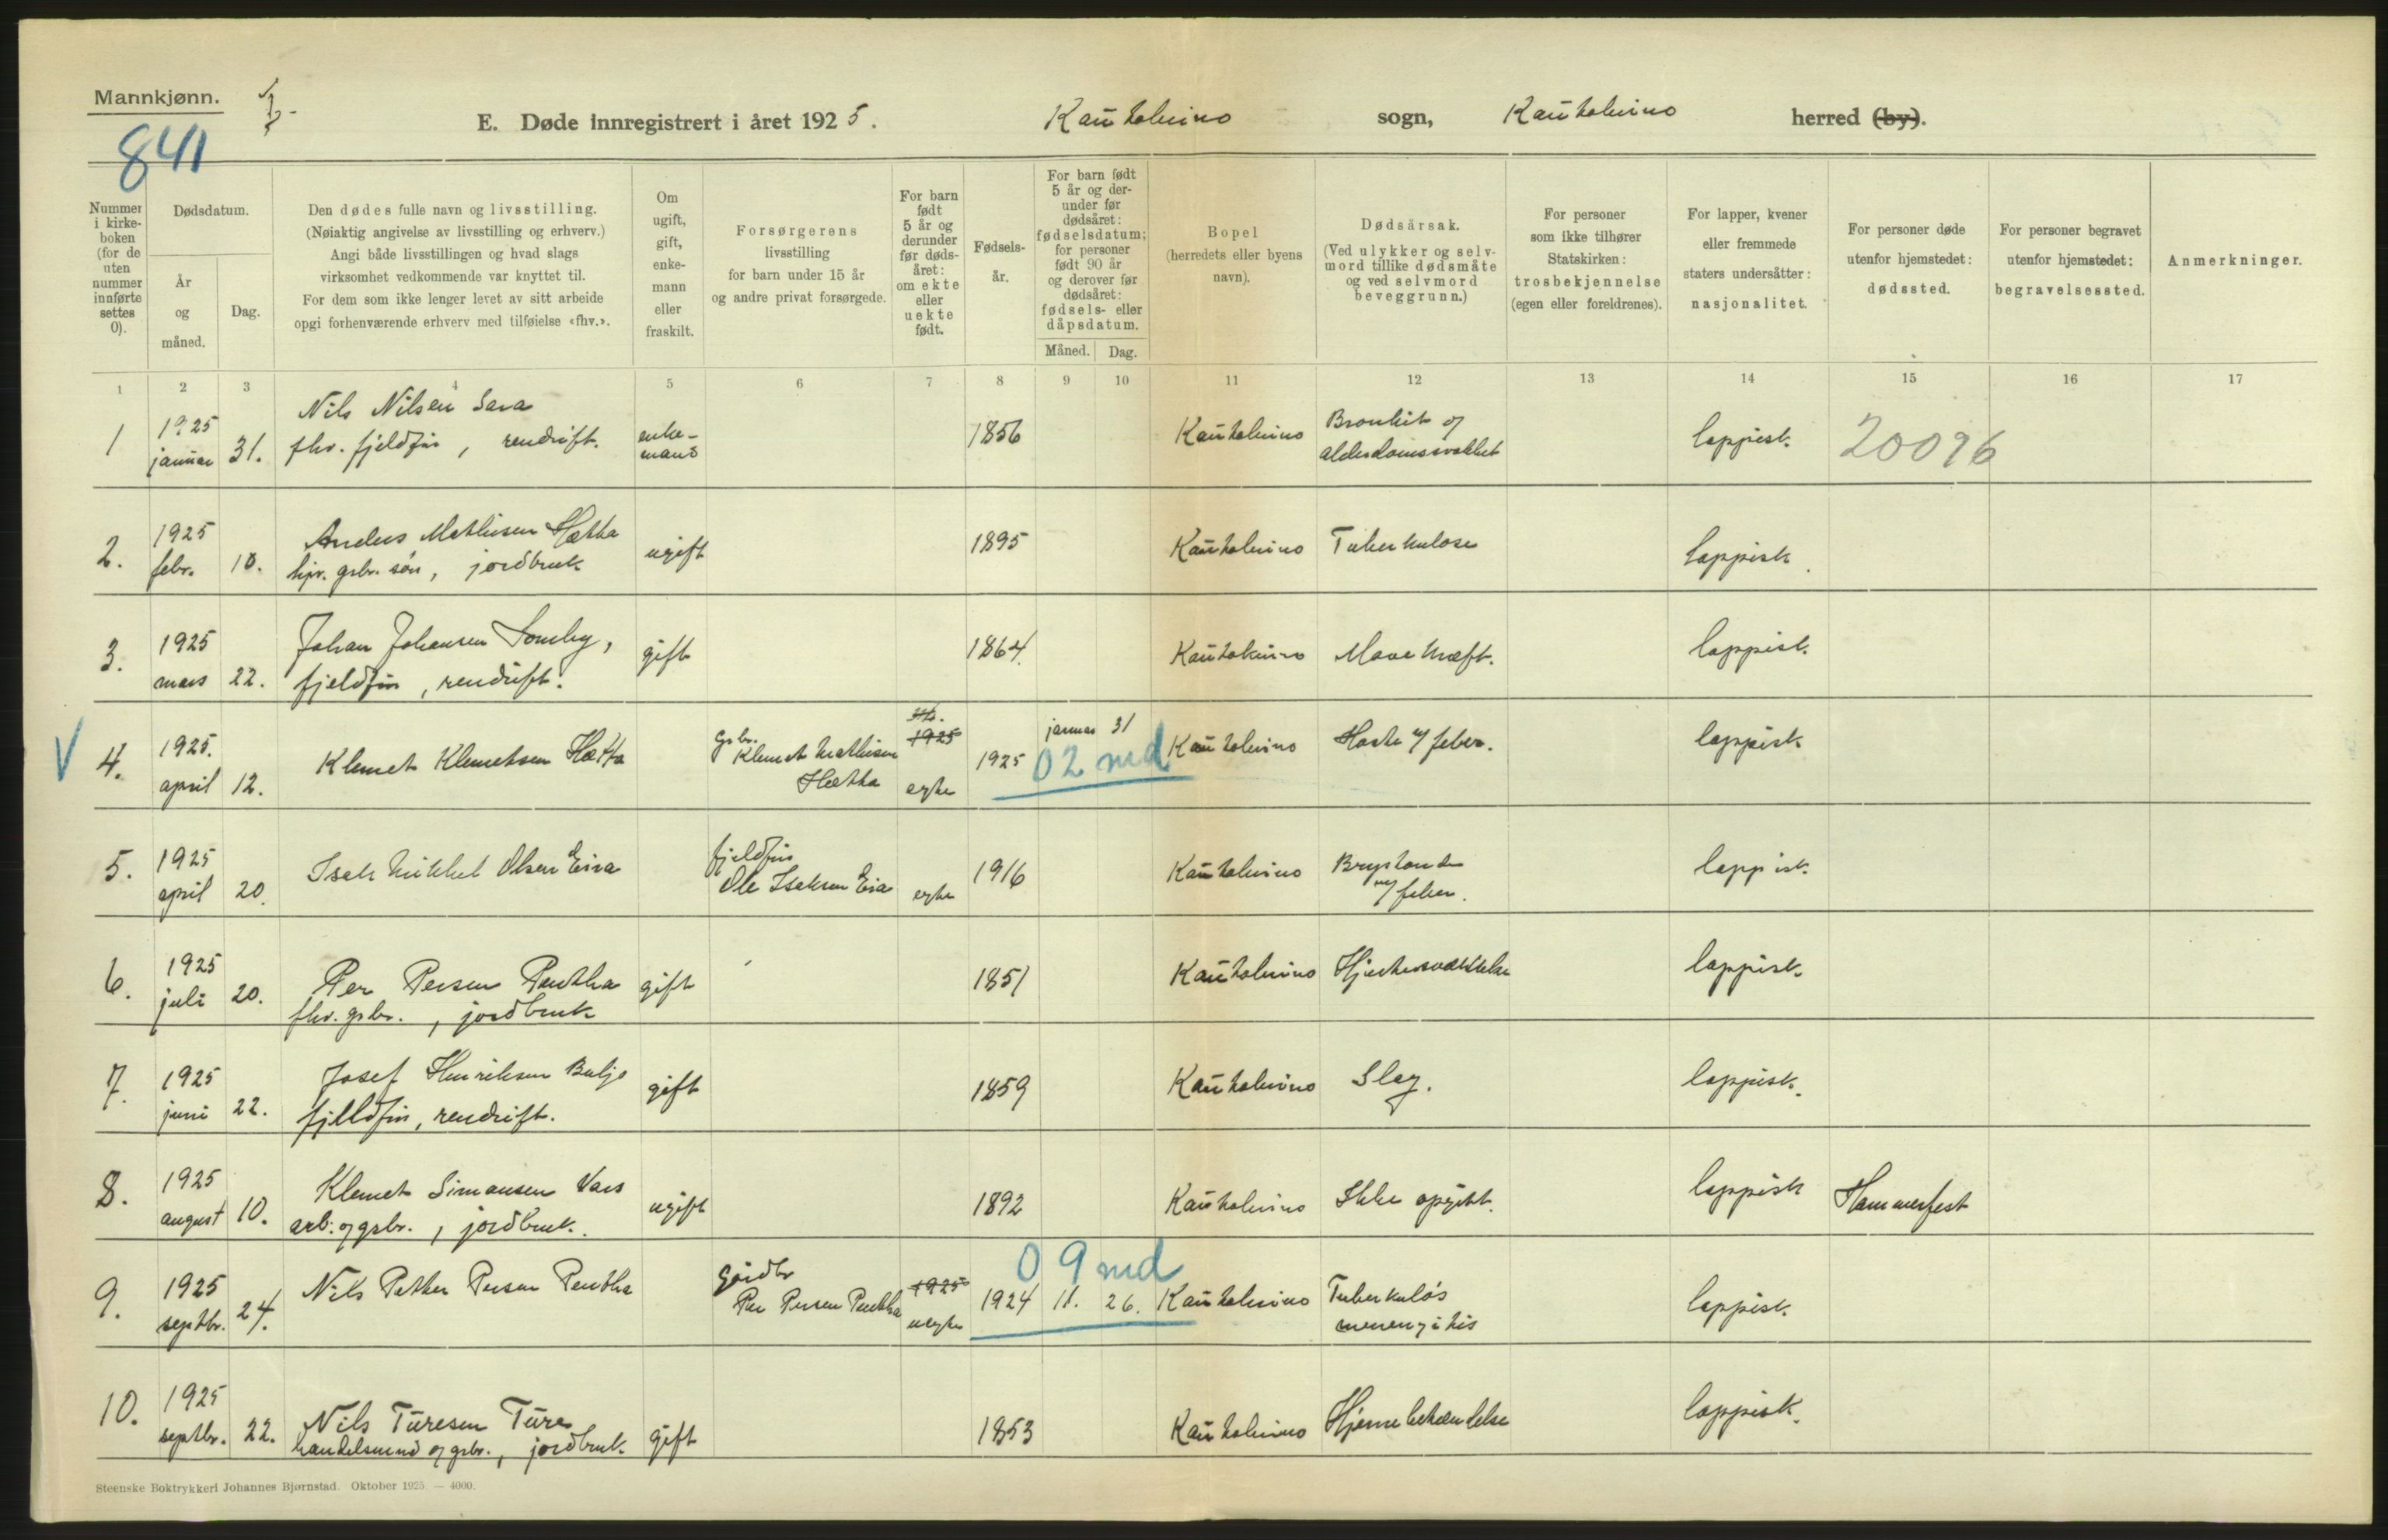 Mannkjønn.
841
E. Døde innregistrert i året 1925.
Kautokeino sogn, Kautokeino herred (by).
Nummer i kirkeboken (for de uten nummer innførte settes 0).
Dødsdatum.
År og måned.
Dag.
Den dødes fulle navn og livsstilling.
(Nøiaktig angivelse av livsstilling og erhverv.)
Angi både livsstillingen og hvad slags
virksomhet vedkommende var knyttet til.
For dem som ikke lenger levet av sitt arbeide
opgi forhenværende erhverv med tilføielse «fhv.».
Om ugift, gift, enkemann eller fraskilt.
Forsørgerens
livsstilling
for barn under 15 år
og andre privat forsørgede.
For barn født 5 år og derunder før dødsåret: om ekte eller uekte født.
Fødselsår.
For barn født 5 år og derunder før dødsåret: fødselsdatum; for personer født 90 år og derover før dødsåret: fødsels- eller dåpsdatum.
Måned. Dag.
Bopel
(herredets eller byens
navn).
Dødsårsak.
(Ved ulykker og selvmord tillike dødsmåte og ved selvmord beveggrunn.)
For personer
som ikke tilhører
Statskirken:
trosbekjennelse
(egen eller foreldrenes).
For lapper, kvener
eller fremmede
staters undersåtter:
nasjonalitet.
For personer døde
utenfor hjemstedet:
dødssted.
For personer begravet
utenfor hjemstedet:
begravelsessted.
Anmerkninger.
1 2 3 4 5 6 7 8 9 10 11 12 13 14 15 16 17
1 1925 januar 31. Nils Nilsen Sara
fhv. fjeldfin, rendrift. enkemand 1856 Kautokeino Bronkit og alderdomssvakhet lappisk. 20096
2. 1925 febr. 10. Anders Mathisen Hætta
hjv. grbr. søn, jordbruk ugift 1895 Kautokeino Tuberkulose lappisk.
3. 1925 mars 22. Johan Johansen Somby,
fjeldfin, rendrift. gift 1864. Kautokeino Mavekræft. lappisk.
V 4. 1925. april 12. Klemet Klemetsen Hætta gsbr. Klemet Mathisen Hætta 1925 egte 1925 januar 31 02 md Kautokeino Hoste m/ feber. lappisk
5. 1925 april 20. Isak Mikkel Olsen Eira fjeldfin Ole Isaksen Eira egte 1916 Kautokeino Brystonde m/ feber. lappisk.
6. 1925 juli 20. Per Persen Pentha
fhv. gsbr., jordbruk gift 1851 Kautokeino Hjertesvækkelse lappisk.
7. 1925 juni 22. Josef Henriksen Buljo
fjeldfin, rendrift. gift 1859 Kautokeino Slag. lappisk.
8. 1925 august 10. Klemet Simonsen Vars
arb. og gsbr., jordbruk. ugift 1892 Kautokeino Ikke opgitt. lappisk Hammerfest
9. 1925 septbr. 24. Nils Petter Persen Pentha Gårdbr Per Persen Pentha 1925 uegte 1924 11. 26. 09 md Kautokeino Tuberkuløs meningitis lappisk.
10. 1925 septbr. 22. Nils Turesen Ture
handelsmand og gsbr., jordbruk. gift 1853 Kautokeino lappisk.
Steenske Boktrykkeri Johannes Bjørnstad. Oktober 1925. — 4000.